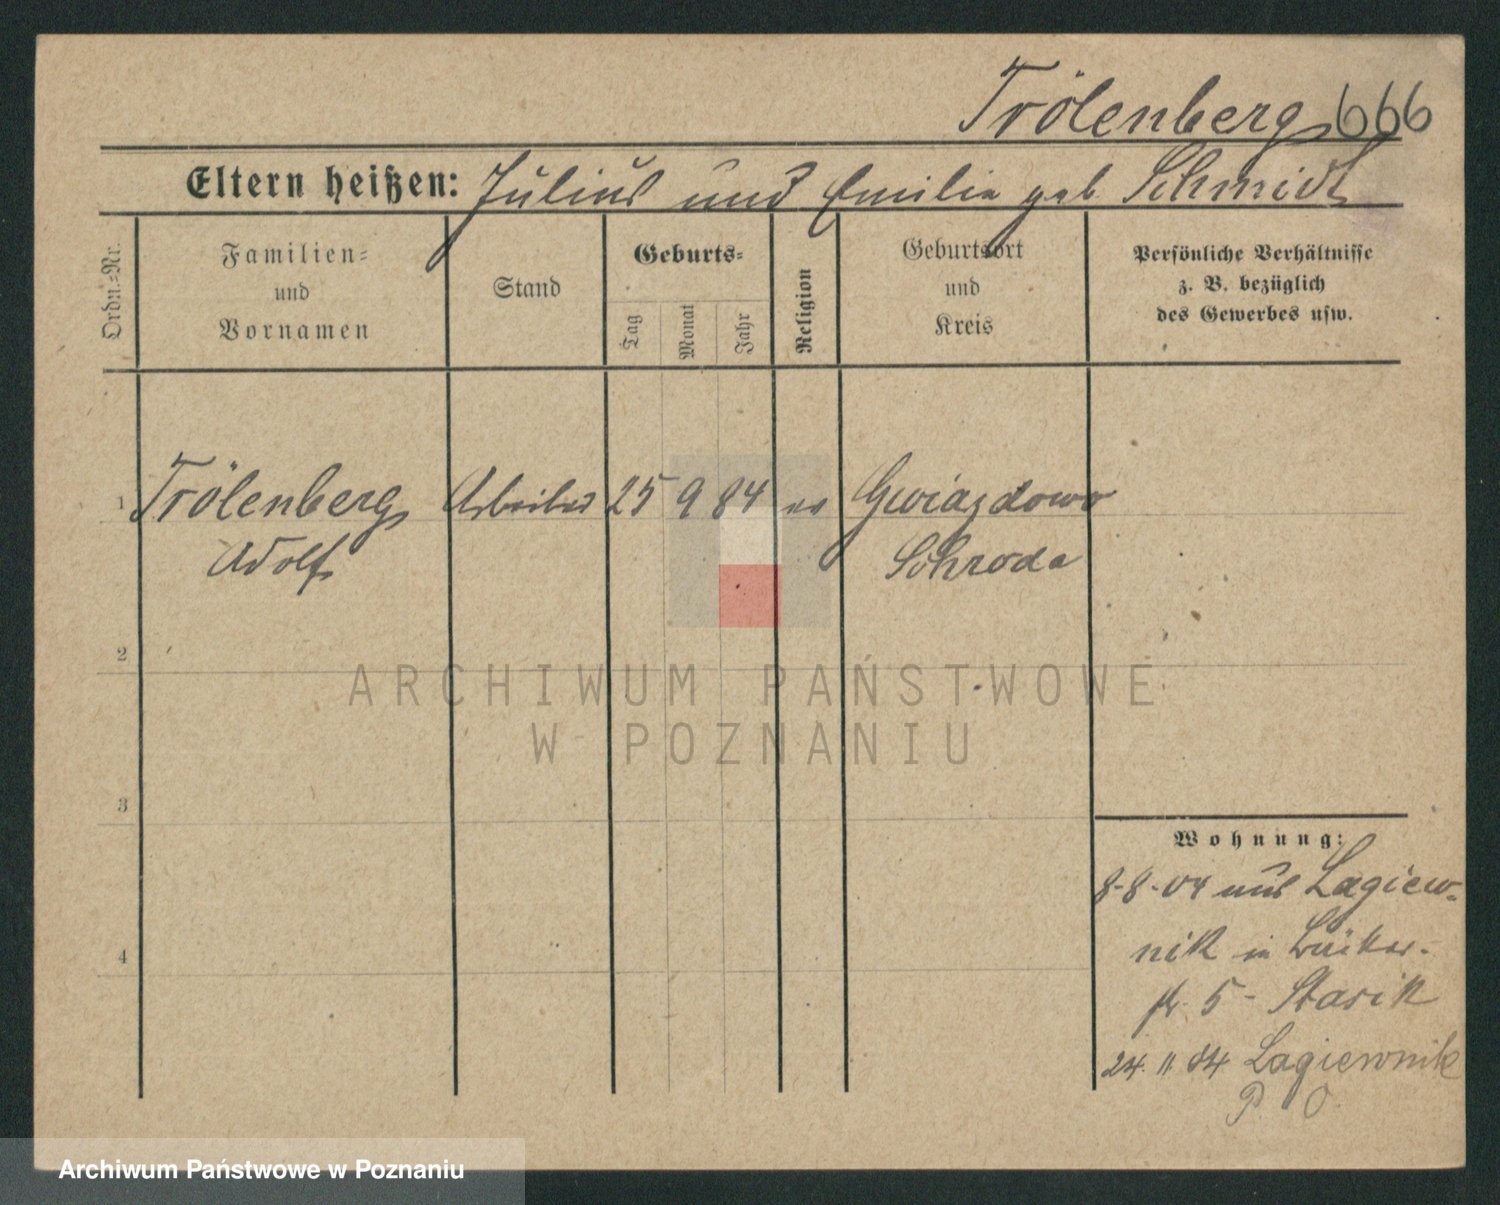 Trölenberg 666
Eltern heißen: Julius und Emilie geb. Schmidt
Ordn.=Nr.
Familien=
und
Vornamen
Stand
Geburts=
Tag
Monat
Jahr
Religion
Geburtsort
und
Kreis
Persönliche Verhältnisse
z. B. bezüglich
des Gewerbes usw.
1 Trölenberg Arbeiter 25 9 84 ev Gwiazdowo
Adolf Schroda
2
ARCHIWUM PAŃSTWOWE
W POZNANIU
3
Wohnung:
8-8-04 aus Lagiew-
4
nik in
str. 5 - Stasik
24. 11 04 Lagiewnik
P O
Archiwum Państwowe w Poznaniu